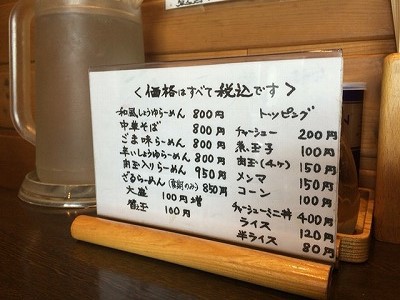 <価格はすべて税込です>
和風しょうゆらーめん 800円
中華そば 800円
ごま味らーめん 800円
辛いしょうゆらーめん 850円
肉玉入りらーめん 950円
ざるらーめん(夜間のみ) 850円
大盛 100円増
替え玉 100円
トッピング
チャーシュー 200円
煮玉子 100円
肉玉(4ヶ) 150円
メンマ 150円
コーン 100円
チャーシューミニ丼 400円
ライス 120円
半ライス 80円